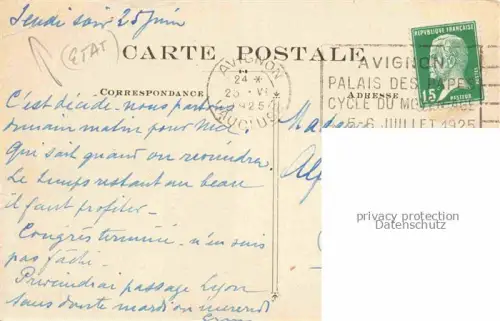 Jeudi soir 25 juin
(ETAT)
CARTE POSTALE
CORRESPONDANCE
ADRESSE
REPUBLIQUE FRANÇAISE
15
PASTEUR
POSTES
AVIGNON
24 *
25 VI
1925
VAUCLUSE
AVIGNON
PALAIS DES PAPES
CYCLE DU MOYEN AGE
5-6 JUILLET 1925
C'est décidé - nous partons
demain matin pour
Qui sait quand on reviendra.
Le temps restant au beau
il faut profiter -
Congrès terminé - n'en suis
pas fâché -
Préviendrai passage Lyon
sans doute mardi ou mercredi
Madame
privacy protection
Datenschutz